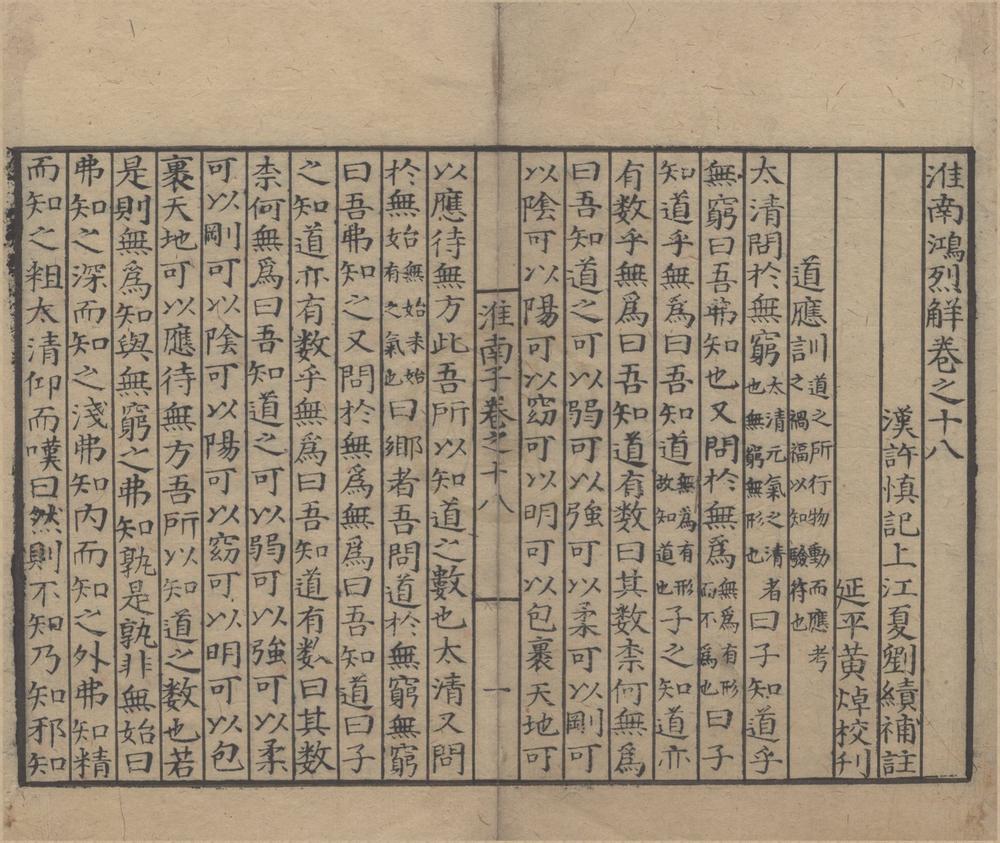 淮南鴻烈解卷之十八
漢許慎記上江夏劉績補註
延平黃焯校刊
道應訓道之所行物動而應考之禍福以知驗符也
太清問於無窮太清元氣之清者也無窮無形也曰子知道乎
無窮曰吾弗知也又問於無爲無爲有形而不爲也曰子
知道乎無爲曰吾知道無爲有形故知道也子之知道亦
有数乎無爲曰吾知道有数曰其数柰何無爲
曰吾知道之可以弱可以強可以柔可以剛可
以陰可以陽可以窈可以明可以包裹天地可
淮南子卷之十八 一
以應待無方此吾所以知道之數也太清又問
於無始無始未始有之氣也曰鄉者吾問道於無窮無窮
曰吾弗知之又問於無爲無爲曰吾知道曰子
之知道亦有数乎無爲曰吾知道有数曰其数
柰何無爲曰吾知道之可以弱可以強可以柔
可以剛可以陰可以陽可以窈可以明可以包
裹天地可以應待無方吾所以知道之数也若
是則無爲知與無窮之弗知孰是孰非無始曰
弗知之深而知之淺弗知內而知之外弗知精
而知之粗太清仰而嘆曰然則不知乃知邪知